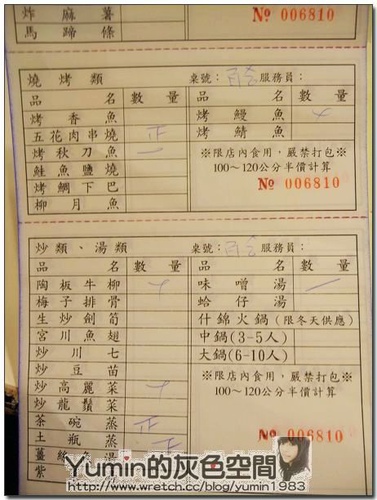 炸麻薯
馬蹄條
No 006810
燒烤類 桌號: 服務員:
品名 數量 品名 數量
烤香魚 烤鰻魚
五花肉串燒 正 烤鯖魚
烤秋刀魚 一
鮭魚鹽燒
烤鯛下巴
柳月魚
※限店內食用,嚴禁打包※
100~120公分半價計算
No 006810
炒類、湯類 桌號: 服務員:
品名 數量 品名 數量
陶板牛柳 味噌湯 一
梅子排骨 蛤仔湯
生炒劍筍 什錦火鍋(限冬天供應)
宮川魚翅 中鍋(3-5人)
炒川七 大鍋(6-10人)
炒豆苗
炒高麗菜
炒龍鬚菜
茶碗蒸 正
土瓶蒸 正
薑
紫
※限店內食用,嚴禁打包※
100~120公分半價計算
No 006810
Yumin的灰色空間
http://www.wretch.cc/blog/yumin1983